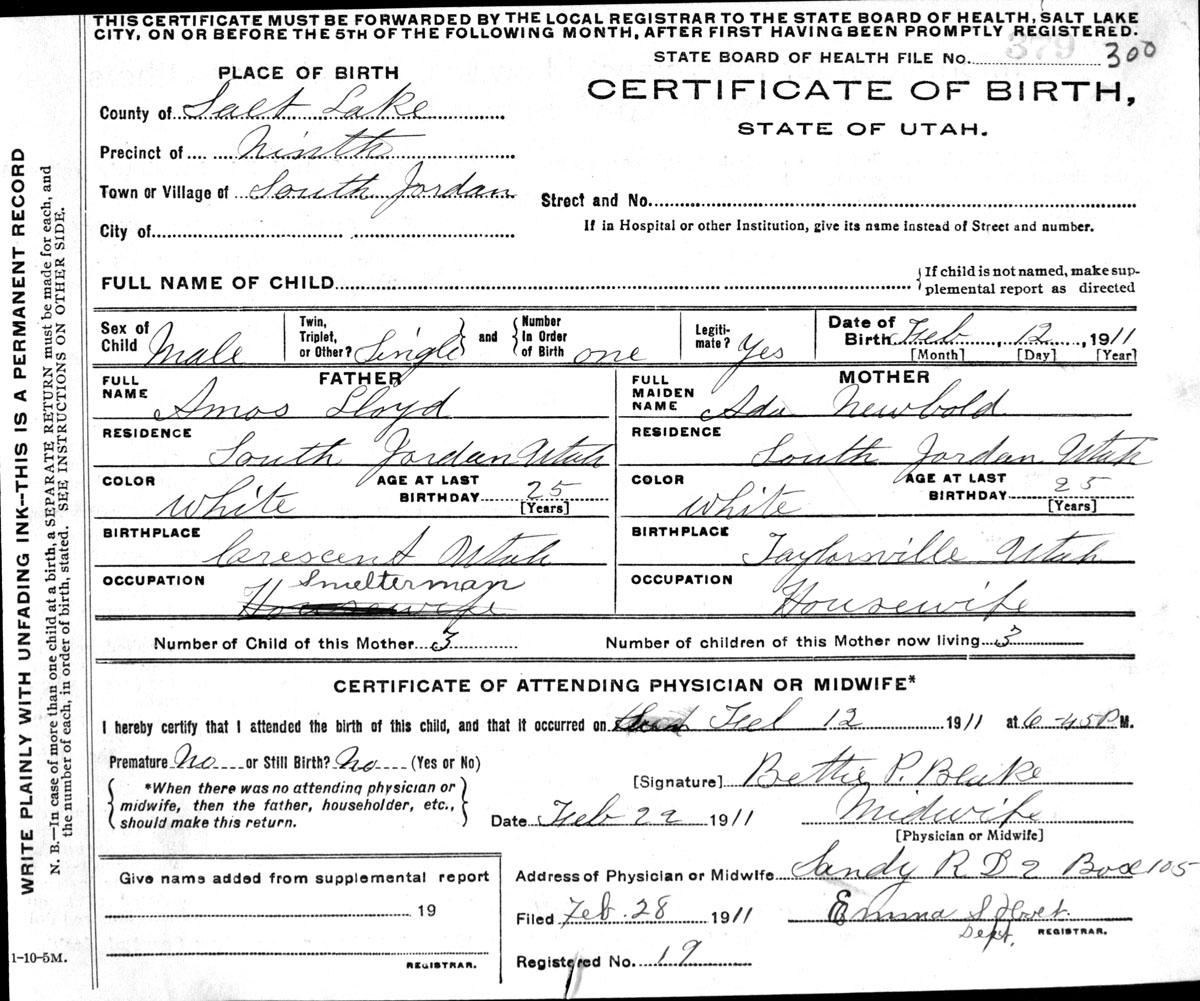 THIS CERTIFICATE MUST BE FORWARDED BY THE LOCAL REGISTRAR TO THE STATE BOARD OF HEALTH, SALT LAKE
CITY, ON OR BEFORE THE 5TH OF THE FOLLOWING MONTH, AFTER FIRST HAVING BEEN PROMPTLY REGISTERED.
STATE BOARD OF HEALTH FILE No. 379 300
CERTIFICATE OF BIRTH,
STATE OF UTAH.
PLACE OF BIRTH
County of Salt Lake
Precinct of Ninth
Town or Village of South Jordan
City of
Street and No.
If in Hospital or other Institution, give its name instead of Street and number.
FULL NAME OF CHILD
If child is not named, make sup-
plemental report as directed
Sex of Child Male
Twin, Triplet, or Other? Single and Number In Order of Birth one
Legiti-mate? Yes
Date of Birth Feb 12, 1911
[Month] [Day] [Year]
FATHER
FULL NAME Amos Lloyd
RESIDENCE South Jordan Utah
COLOR White AGE AT LAST BIRTHDAY 25 [Years]
BIRTHPLACE Crescent Utah
OCCUPATION Smelterman
Housewife
MOTHER
FULL MAIDEN NAME Ada Newbold
RESIDENCE South Jordan Utah
COLOR White AGE AT LAST BIRTHDAY 25 [Years]
BIRTHPLACE Taylorsville Utah
OCCUPATION Housewife
Number of Child of this Mother 3 Number of children of this Mother now living 3
CERTIFICATE OF ATTENDING PHYSICIAN OR MIDWIFE*
I hereby certify that I attended the birth of this child, and that it occurred on Feb 12 1911 at 6-45 P M.
Premature No or Still Birth? No (Yes or No)
*When there was no attending physician or
midwife, then the father, householder, etc.,
should make this return.
[Signature] Bettie P. Blake
Date Feb 22 1911 Midwife
[Physician or Midwife]
Give name added from supplemental report
19
REGISTRAR.
Address of Physician or Midwife Sandy R D 2 Box 105
Filed Feb. 28 1911 Emma S
Dept. REGISTRAR.
Registered No. 19
1-10-5M.
WRITE PLAINLY WITH UNFADING INK—THIS IS A PERMANENT RECORD
N. B.—In case of more than one child at a birth, a SEPARATE RETURN must be made for each, and
the number of each, in order of birth, stated. SEE INSTRUCTIONS ON OTHER SIDE.